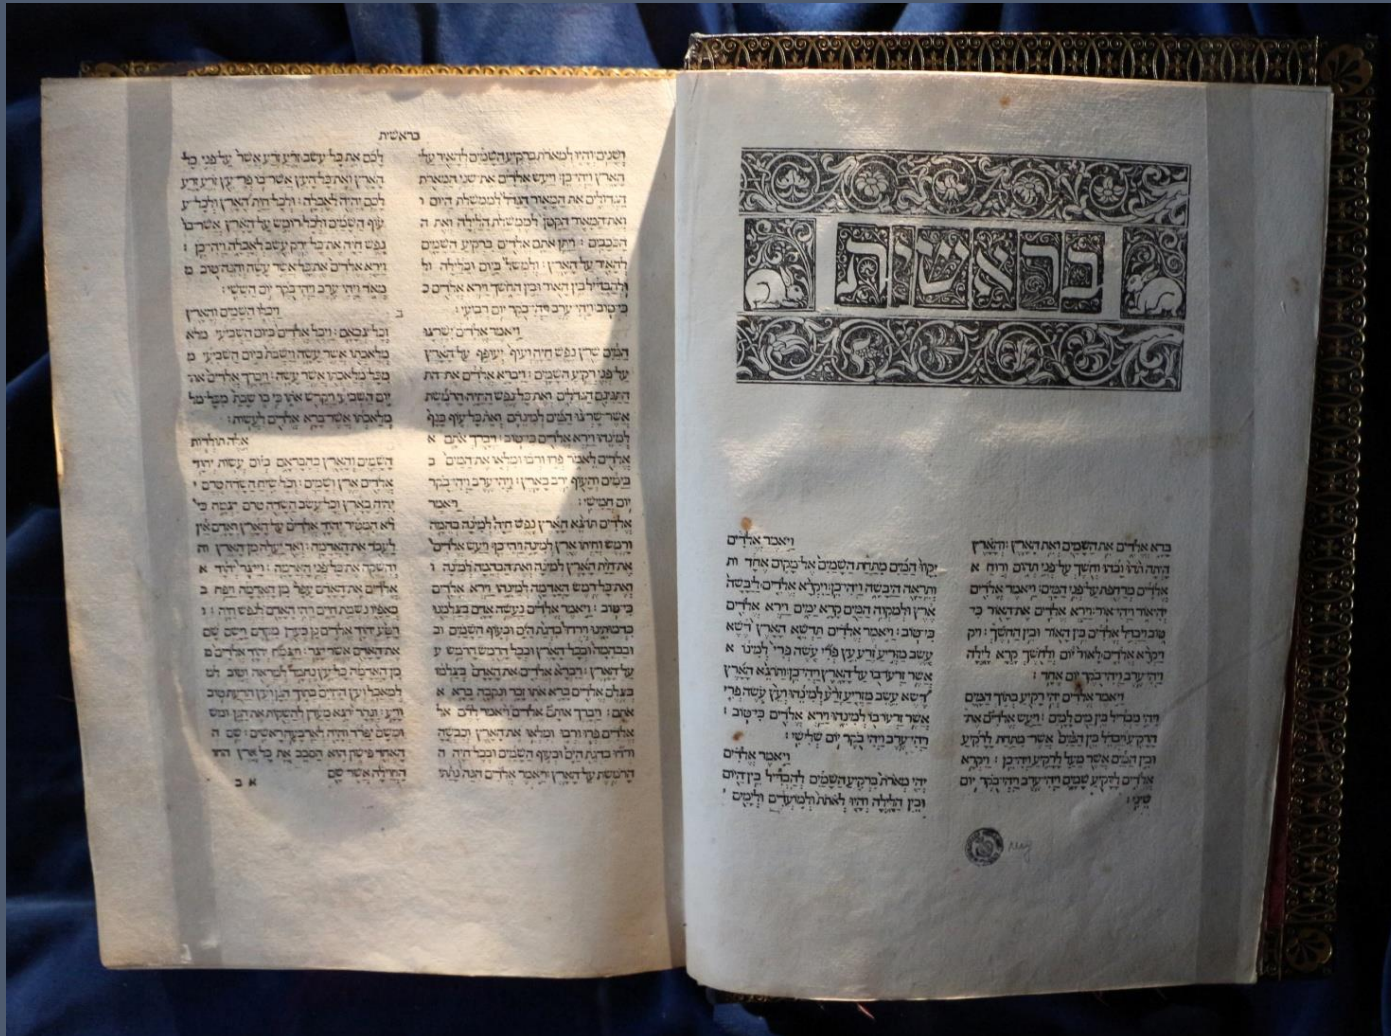 בראשית
ברא אלדים את השמים ואת הארץ : והארץ
היתה תהו ובהו וחשך על פני תהום ורוח א
אלדים מרחפת על פני המים : ויאמר אלדים
יהי אור ויהי אור : וירא אלדים את האור כי
טוב ויבדל אלדים בין האור ובין החשך : ויק
ויקרא אלדים לאור יום ולחשך קרא לילה
ויהי ערב ויהי בקר יום אחד :
ויאמר אלדים יהי רקיע בתוך המים
ויהי מבדיל בין מים למים : ויעש אלדים את
הרקיע ויבדל בין המים אשר מתחת לרקיע
ובין המים אשר מעל לרקיע ויהי כן : ויקרא
אלדים לרקיע שמים ויהי ערב ויהי בקר יום
שיני :
ויאמר אלדים
יקוו המים מתחת השמים אל מקום אחד ות
ותראה היבשה ויהי כן : ויקרא אלדים ליבשה
ארץ ולמקוה המים קרא ימים וירא אלדים
כי טוב : ויאמר אלדים תדשא הארץ דשא
עשב מזריע זרע עץ פרי עשה פרי למינו א
אשר זרעו בו על הארץ ויהי כן : ותוצא הארץ
דשא עשב מזריע זרע למינהו ועץ עשה פרי
אשר זרעו בו למינהו וירא אלדים כי טוב :
ויהי ערב ויהי בקר יום שלישי :
ויאמר אלדים
יהי מארת ברקיע השמים להבדיל בין היום
ובין הלילה והיו לאתת ולמועדים ולימים
בראשית
ושנים : והיו למאורת ברקיע השמים להאיר על
הארץ ויהי כן : ויעש אלדים את שני המארת
הגדולים את המאור הגדל לממשלת היום ו
ואת המאור הקטן לממשלת הלילה ואת ה
הכוכבים : ויתן אתם אלדים ברקיע השמים
להאיר על הארץ : ולמשל ביום ובלילה ול
ולהבדיל בין האור ובין החשך וירא אלדים כ
כי טוב ויהי ערב ויהי בקר יום רביעי :
ויאמר אלדים ישרצו
המים שרץ נפש חיה ועוף יעופף על הארץ
על פני רקיע השמים : ויברא אלדים את הת
התנינם הגדלים ואת כל נפש החיה הרמשת
אשר שרצו המים למינהם ואת כל עוף כנף
למינהו וירא אלדים כי טוב : ויברך אתם א
אלדים לאמר פרו ורבו ומלאו את המים ב
בימים והעוף ירב בארץ : ויהי ערב ויהי בקר
יום חמישי : ויאמר
אלדים תוצא הארץ נפש חיה למינה בהמה
ורמש וחיתו ארץ למינה ויהי כן : ויעש אלדים
את חית הארץ למינה ואת הבהמה למינה ו
ואת כל רמש האדמה למינהו וירא אלדים
כי טוב : ויאמר אלדים נעשה אדם בצלמנו
כדמותנו וירדו בדגת הים ובעוף השמים וב
ובבהמה ובכל הארץ ובכל הרמש הרמש ע
על הארץ : ויברא אלדים את האדם בצלמו
בצלם אלדים ברא אתו זכר ונקבה ברא א
אתם : ויברך אותם אלדים ויאמר להם אל
אלדים פרו ורבו ומלאו את הארץ וכבשה
ורדו בדגת הים ובעוף השמים ובכל חיה ה
הרמשת על הארץ : ויאמר אלדים הנה נתתי
לכם את כל עשב זרע זרע אשר על פני כל
הארץ ואת כל העץ אשר בו פרי עץ זרע זרע
לכם יהיה לאכלה : ולכל חית הארץ ולכל ע
עוף השמים ולכל רומש על הארץ אשר בו
נפש חיה את כל ירק עשב לאכלה ויהי כן :
וירא אלדים את כל אשר עשה והנה טוב מ
מאד ויהי ערב ויהי בקר יום הששי :
ב ויכלו השמים והארץ
וכל צבאם : ויכל אלדים ביום השביעי מלא
מלאכתו אשר עשה וישבת ביום השביעי מ
מכל מלאכתו אשר עשה : ויברך אלדים את
יום השביעי ויקדש אתו כי בו שבת מכל מל
מלאכתו אשר ברא אלדים לעשות :
אלה תולדות
השמים והארץ בהבראם ביום עשות יהוד
אלדים ארץ ושמים : וכל שיח השדה טרם י
יהיה בארץ וכל עשב השדה טרם יצמח כי
לא המטיר יהוד אלדים על הארץ ואדם אין
לעבד את האדמה : ואד יעלה מן הארץ וה
והשקה את כל פני האדמה : וייצר יהוד א
אלדים את האדם עפר מן האדמה ויפח ב
באפיו נשמת חיים ויהי האדם לנפש חיה : ו
ויטע יהוד אלדים גן בעדן מקדם וישם שם
את האדם אשר יצר : ויצמח יהוד אלדים מ
מן האדמה כל עץ נחמד למראה וטוב
למאכל ועץ החיים בתוך הגן ועץ הדעת טוב
ורע : ונהר יצא מעדן להשקות את הגן ומש
ומשם יפרד והיה לארבעה ראשים : שם ה
האחד פישון הוא הסבב את כל ארץ החו
החוילה אשר שם
א ב